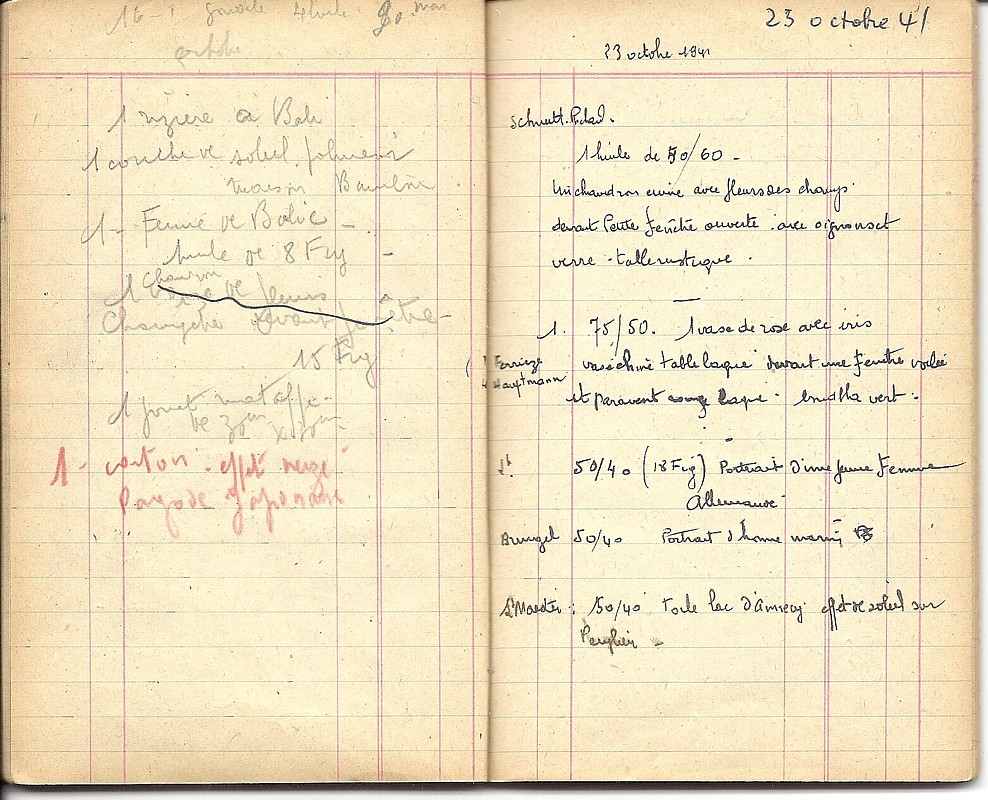 octobre
1 rizière à Bali
1 couche de soleil.
maison
1 - Femme de Balie -
huile de 8 Fig -
1 vase de fleurs
Champetre devant fenêtre -
15 Fig
1
1 - carton - effet neige
Pagode Japonaise
23 octobre 41
23 octobre 1941
1 huile de 50/60 -
Un chaudron cuivre avec fleurs des champs
devant Petite fenêtre ouverte avec oignons et
verre - table rustique .
1. 75/50. 1 vase de rose avec iris
Hauptmann
vase chine table laque devant une fenetre voilée
et paravent rouge laque - vert .
50/40 (18 Fig) Portrait d'une jeune femme
Allemande
50/40 Portrait d'homme marin
50/40 toile lac d'Annecy effet de soleil sur